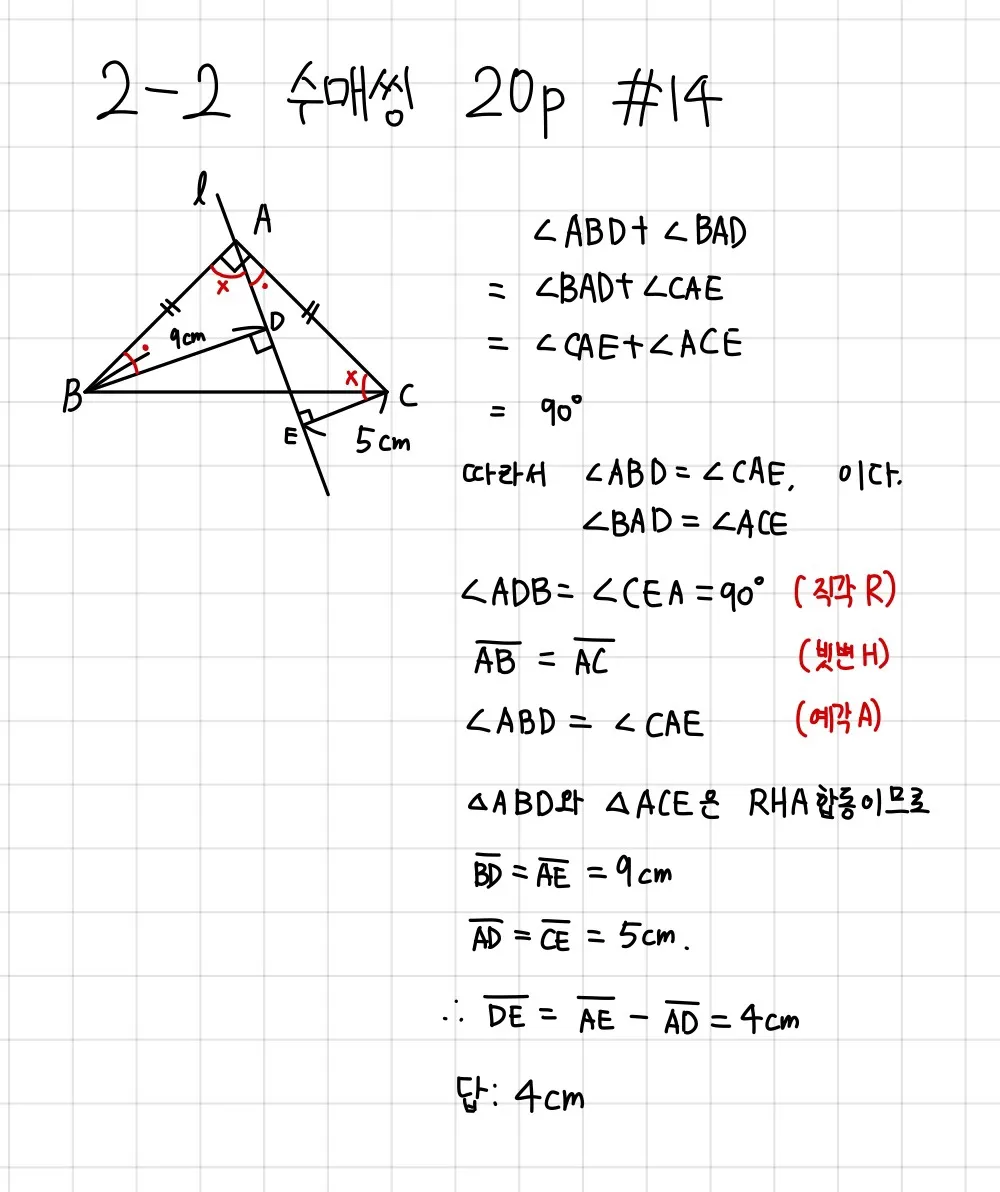 2-2 수매씽 20p #14
l
A
x
D
9cm
B
x
C
E
5cm
∠ABD + ∠BAD
= ∠BAD + ∠CAE
= ∠CAE + ∠ACE
= 90°
따라서 ∠ABD = ∠CAE, 이다.
∠BAD = ∠ACE
∠ADB = ∠CEA = 90° (직각 R)
A̅B̅ = A̅C̅ (빗변 H)
∠ABD = ∠CAE (예각 A)
△ABD와 △ACE은 RHA 합동이므로
B̅D̅ = A̅E̅ = 9cm
A̅D̅ = C̅E̅ = 5cm.
∴ D̅E̅ = A̅E̅ - A̅D̅ = 4cm
답: 4cm